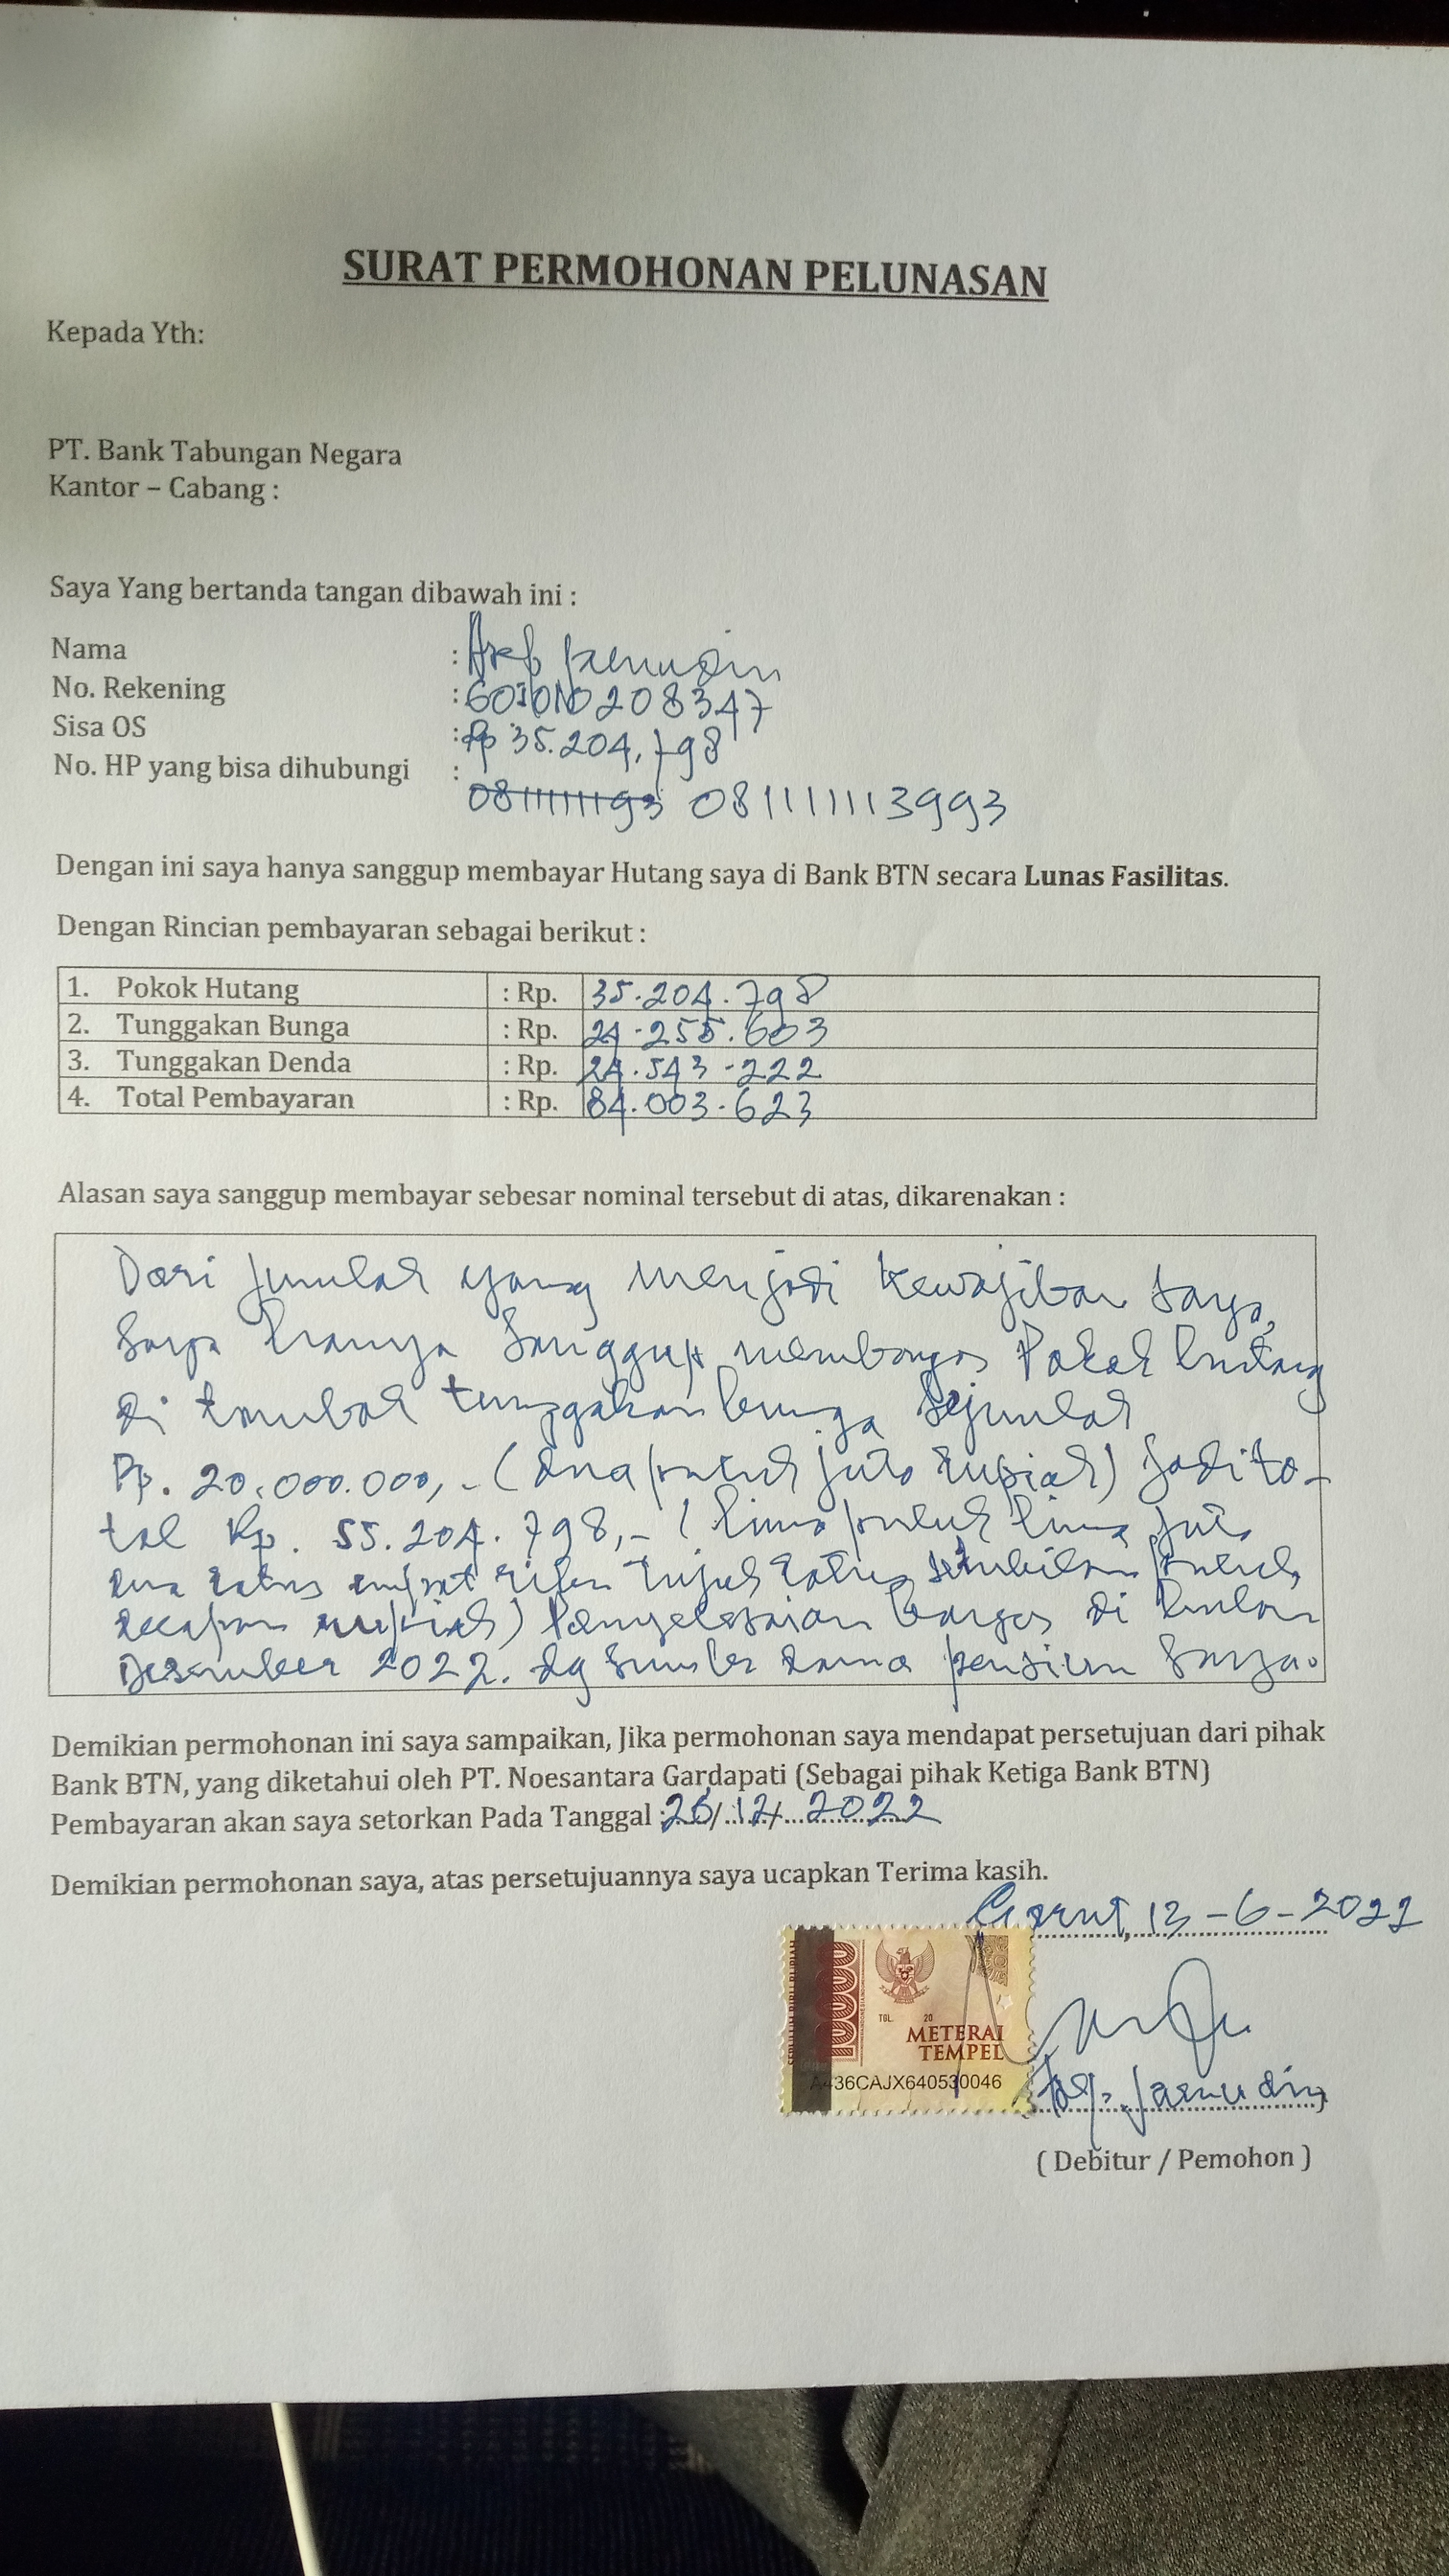 SURAT PERMOHONAN PELUNASAN
Kepada Yth:
PT. Bank Tabungan Negara
Kantor – Cabang :
Saya Yang bertanda tangan dibawah ini :
Nama :
No. Rekening :
Sisa OS : Rp 35.204.798
No. HP yang bisa dihubungi :
081111113993
Dengan ini saya hanya sanggup membayar Hutang saya di Bank BTN secara Lunas Fasilitas.
Dengan Rincian pembayaran sebagai berikut :
1. Pokok Hutang : Rp. 35.204.798
2. Tunggakan Bunga : Rp. 24.255.603
3. Tunggakan Denda : Rp. 24.543.222
4. Total Pembayaran : Rp. 84.003.623
Alasan saya sanggup membayar sebesar nominal tersebut di atas, dikarenakan :
Dari jumlah yang menjadi kewajiban saya,
saya hanya sanggup membayar Pokok hutang
di tambah tunggakan bunga sejumlah
Rp. 20.000.000,- (dua puluh juta rupiah) jadi to-
tal Rp. 55.204.798,- (lima puluh lima juta
dua ratus empat ribu tujuh ratus sembilan puluh
delapan rupiah) Penyelesaian bayar di bulan
Desember 2022. dg sumber dana pensiun saya.
Demikian permohonan ini saya sampaikan, Jika permohonan saya mendapat persetujuan dari pihak
Bank BTN, yang diketahui oleh PT. Noesantara Gardapati (Sebagai pihak Ketiga Bank BTN)
Pembayaran akan saya setorkan Pada Tanggal : 26/12/2022
Demikian permohonan saya, atas persetujuannya saya ucapkan Terima kasih.
Garut, 13-6-2022
10000
TGL. 20
METERAI
TEMPEL
A436CAJX640530046
( Debitur / Pemohon )